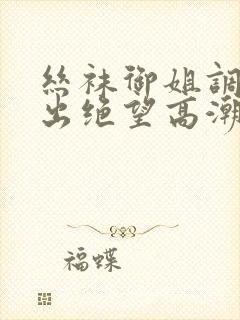 丝袜御姐調
出绝望高潮
福蝶